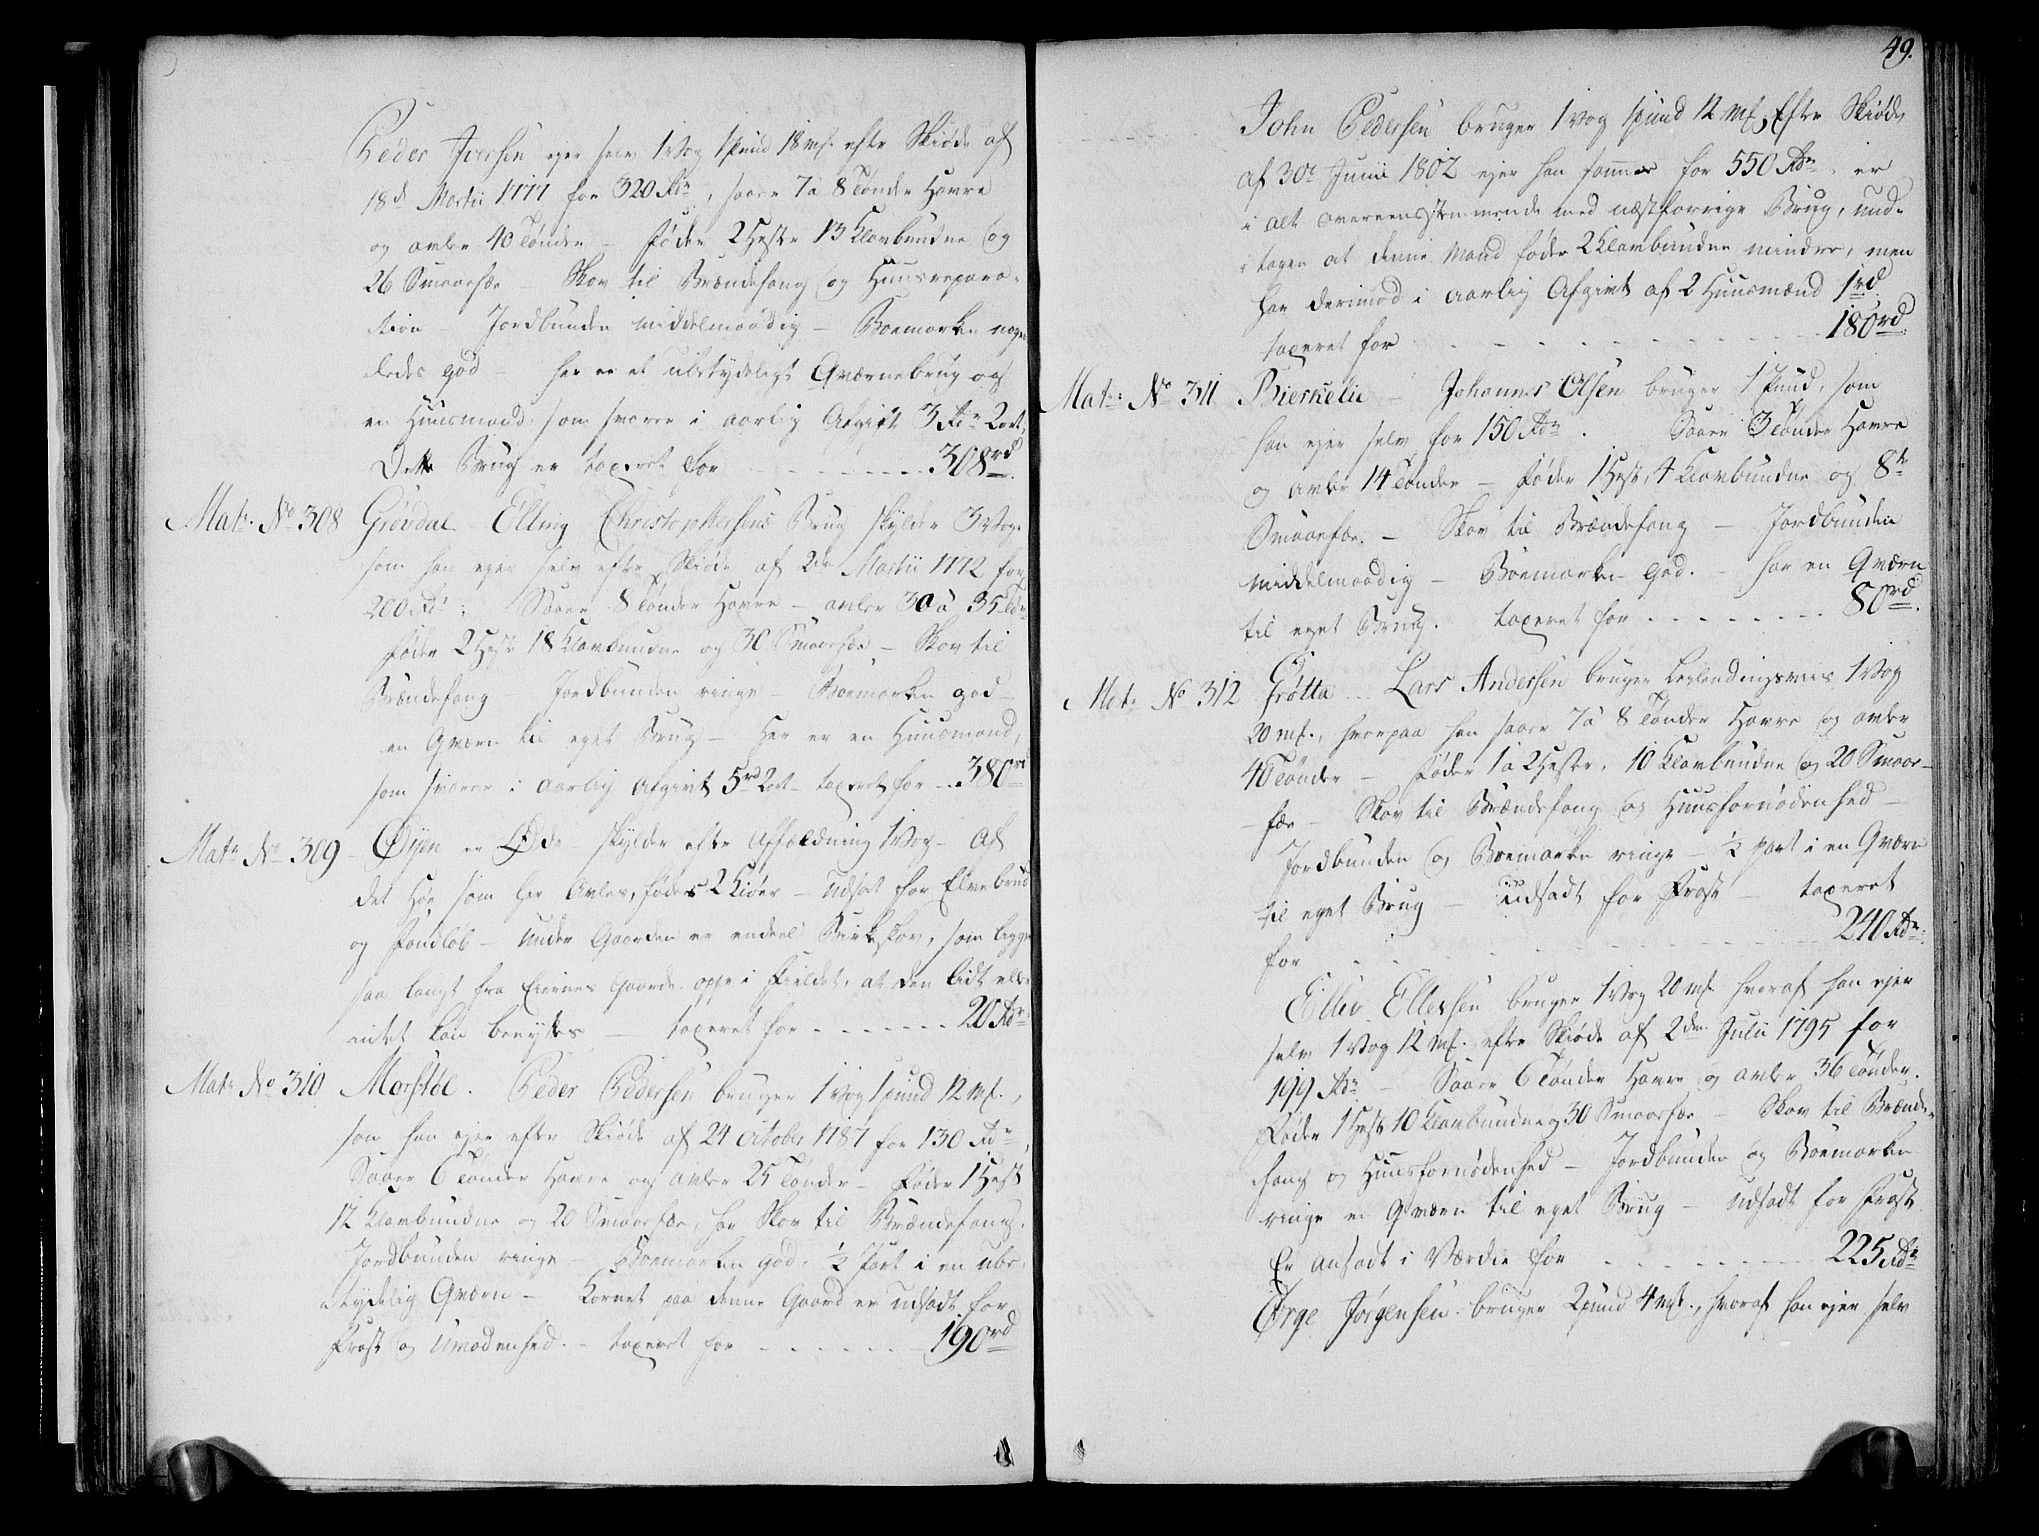 Peder Iversen ejer selv 1 Vog 1 Pund 18 mk. efter Skiøde af
18de Martii 1777 for 320 Rdr, saaer 7 à 8 Tønder Havre
og avler 40 Tønder – føder 2 Heste 13 Klavbundne og
26 Smaafæe – Skov til Brændefang og Huusrepara-
tion – Jordbunden middelmaadig – Bøemarken nogen-
ledes god – her er et ubetydeligt Qværnebrug og
en Huusmand, som svarer i aarlig Afgivt 3 Rdr 2 ort,
Dette Brug er taxeret for - - - - - - - 308 rd.
Matr. No 308 Grøvdal Elling Christophersens Brug skylder 3 Vog
som han ejer selv efter Skiøde af 2den Martii 1772 for
200 Rdr; Saaer 8 Tønder Havre – avler 30 à 35 Tdr
føder 2 Heste 18 Klavbundne og 30 Smaafæe – Skov til
Brændefang – Jordbunden ringe – Bøemarken god –
en Qværn til eget Brug – Her er en Huusmand,
som svarer i aarlig Afgivt 5 rd 2 ort – taxeret for - 380 rd
Matr No 309 - Øyen er Øde – skylder efter Affældning 1 Vog – Af
det Høe som her Avles, fødes 2 Kiøer – Udsat for Elvebrud
og Sandløb – Under Gaarden er endeel Birkskov, som ligger
saa langt fra Eiernes Gaarde oppe i Fieldet, at den lidt eller
intet kan benyttes – taxeret for - - - - - - - 20 Rdr
Matr No 310 Morstøl. Peder Pedersen bruger 1 Vog 1 pund 12 mk.,
som han ejer efter Skiøde af 24 October 1787 for 130 Rdr,
Saaer 6 Tønder Havre og avler 25 Tønder – Føder 1 Hest
12 Klavbundne og 20 Smaafæe, har Skov til Brændefang,
Jordbunden ringe – Bøemarken god, ½ Part i en ube-
tydelig Qværn – Kornet paa denne Gaard er udsadt for
Frost og Umodenhed. – taxeret for - - - - - - - 190 rd
49.
John Pedersen bruger 1 Vog 1 pund 12 mk, Efter Skiøde
af 30te Junii 1802 ejer han samme for 550 Rdr, er
i alt overeensstemmende med næstforrige Brug, und-
tagen at denne Mand føder 2 Klavbundne mindre, men
har derimod i aarlig Afgivt af 2 Huusmænd 1 rd
taxeret for - - - - - - - - - 180 rd.
Matr: No 311 Bierkelie – Johannes Olsen bruger 1 Pund, som
han ejer selv for 150 Rdr. Saaer 3 Tønder Havre
og avler 14 Tønder – føder 1 Hest, 4 Klavbundne og 8te
Smaafæe. – Skov til Brændefang – Jordbunden
middelmaadig – Bøemarken god. – har en Qværn
til eget Brug. taxeret for - - - - - - - - 80 rd.
Matr No 312 Grøtta – Lars Andersen bruger Leylendingsviis 1 Vog
20 mk., hvorpaa han saaer 7 à 8 Tønder Havre og avler
40 Tønder – føder 1 à 2 Heste, 10 Klavbundne og 20 Smaae-
fæe – Skov til Brændefang og Huusfornødenhed –
Jordbunden og Bøemarken ringe – ½ part i en Qværn
til eget Brug – udsadt for Frost – taxeret
for - - - - - - - - - 240 Rdr.
Ellev Ellevsen bruger 1 Vog 20 mk. hvoraf han ejer
selv 1 Vog 12 mk. efter Skiøde af 2den Julii 1795 for
199 Rdr – Saaer 6 Tønder Havre og avler 36 Tønder.
Føder 1 Hest 10 Klavbundne og 30 Smaafæe – Skov til Brænde-
fang og Huusfornødenhed – Jordbunden og Bøemarken
ringe en Qværn til eget Brug – udsadt for Frost
Er ansadt i Værdie for - - - - - - - - 225 Rdr
Ørge Jørgensen bruger 2 pund 4 mk., hvoraf han ejer selv